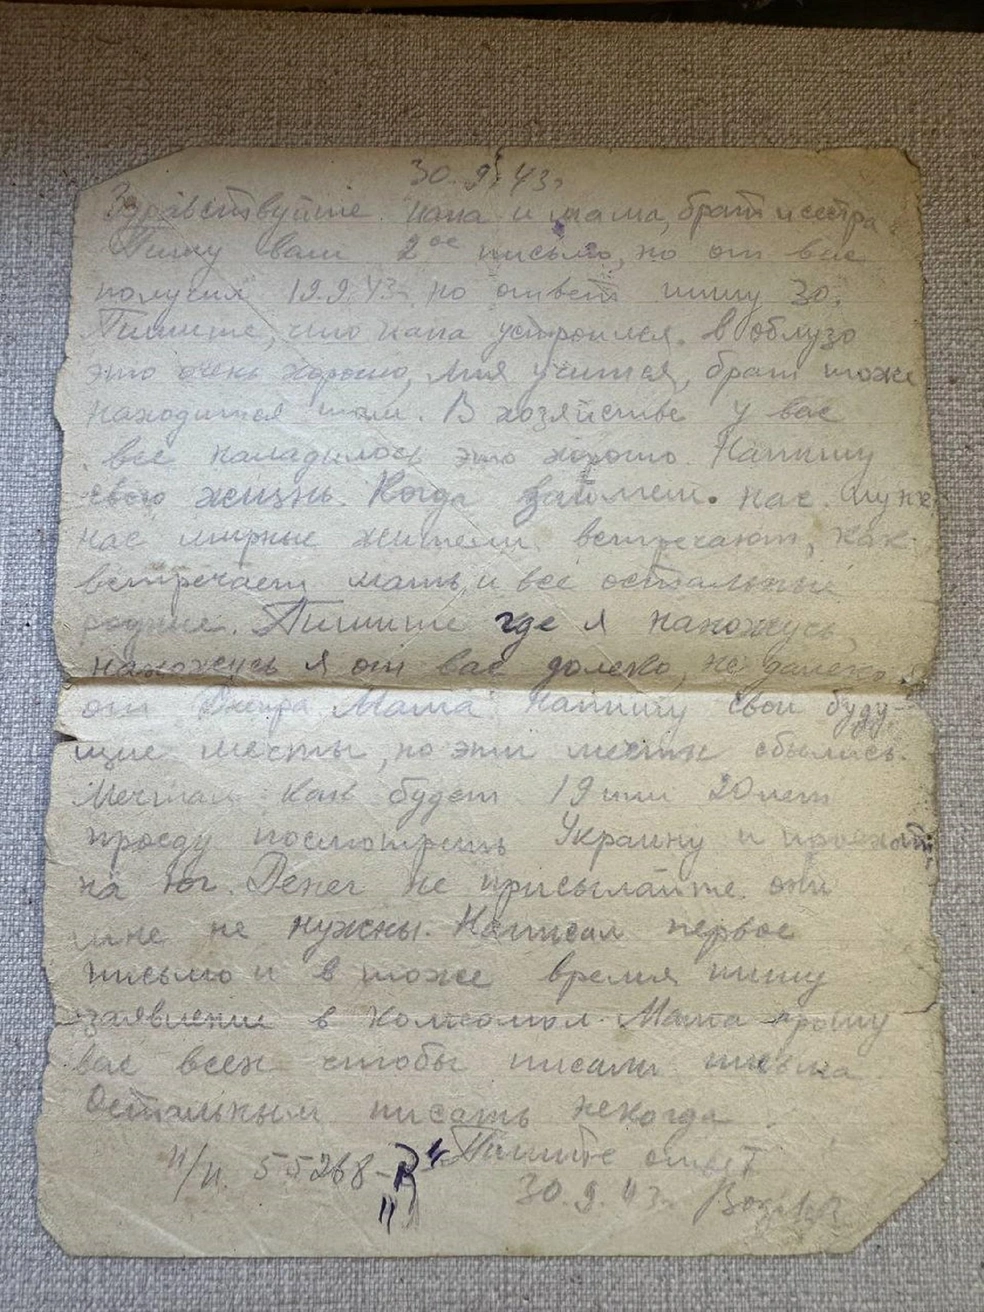 30.9.43 г.
Здравствуйте папа и мама, брат и сестра.
Пишу вам 2ое письмо, но от вас
получил 19.9.43 г. но ответ пишу 30.
Пишите, что папа устроился в облузо
это очень хорошо, учится, брат тоже
находится там. В хозяйстве у вас
все наладилось это хорошо. Напишу
свою жизнь. Когда займем. нас.
нас мирные жители встречают, как
встречает мать и все остальные
родные. Пишите где я нахожусь,
нахожусь я от вас долеко, не далеко
от Днепра. Мама напишу свои буду-
щие мечты, но эти мечты сбылись.
Мечтал как будет 19 или 20 лет
проеду посмотреть Украину и проехать
на юг. Денег не присылайте они
мне не нужны. Написал первое
письмо и в тоже время пишу
заявление в Комсомол. Мама прошу
вас всех чтобы писали письма.
Остальным писать некогда.
Пишите ответ
п/п. 55268-В
30.9.43 г.